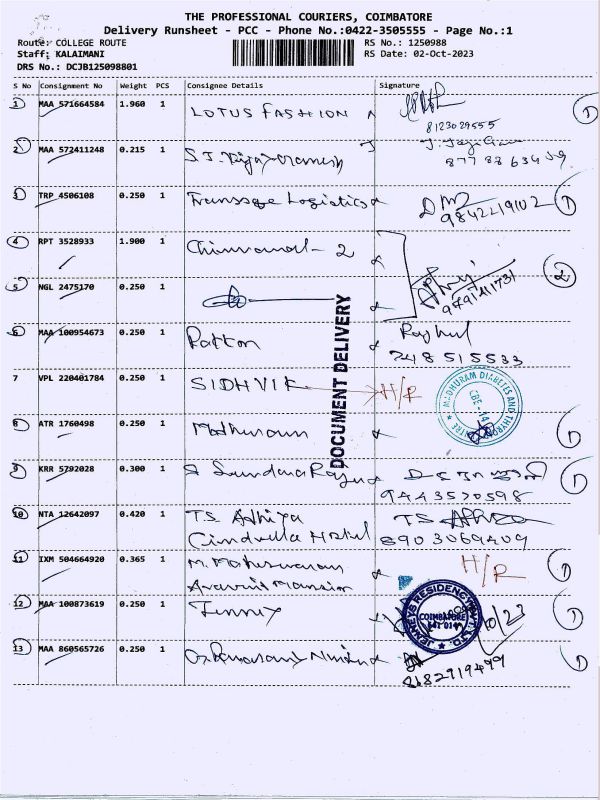 THE PROFESSIONAL COURIERS, COIMBATORE
Delivery Runsheet - PCC - Phone No.:0422-3505555 - Page No.:1
Route: COLLEGE ROUTE RS No.: 1250988
Staff: KALAIMANI RS Date: 02-Oct-2023
DRS No.: DCJB125098801
S No Consignment No Weight PCS Consignee Details Signature
1 MAA 571664584 1.960 1 LOTUS FASHION
8123029555
2 MAA 572411248 0.215 1 S.J.
3 TRP 4506108 0.250 1 Logistics
9842219102 1
4 RPT 3528933 1.900 1 2
5 NGL 2475170 0.250 1 2
6 MAA 100954673 0.250 1 Patton Raghul
248515533
7 VPL 220401784 0.250 1 SIDHVIK H/R
MADHURAM DIABETES AND THYROID CENTRE
CBE-14
8 ATR 1760498 0.250 1 Madhuram 1
DOCUMENT DELIVERY
9 KRR 5792028 0.300 1 1
9443570598
10 NTA 12642097 0.420 1 T.S. Athiya T.S
Cindrella Hotel 8903069409
11 IXM 504664920 0.365 1 M. Maheswaran H/R 1
Aravind Mansion
12 MAA 100873619 0.250 1 Jenney 1
JENNEYS RESIDENCY PVT. LTD.
COIMBATORE
641 014
13 MAA 860565726 0.250 1 1